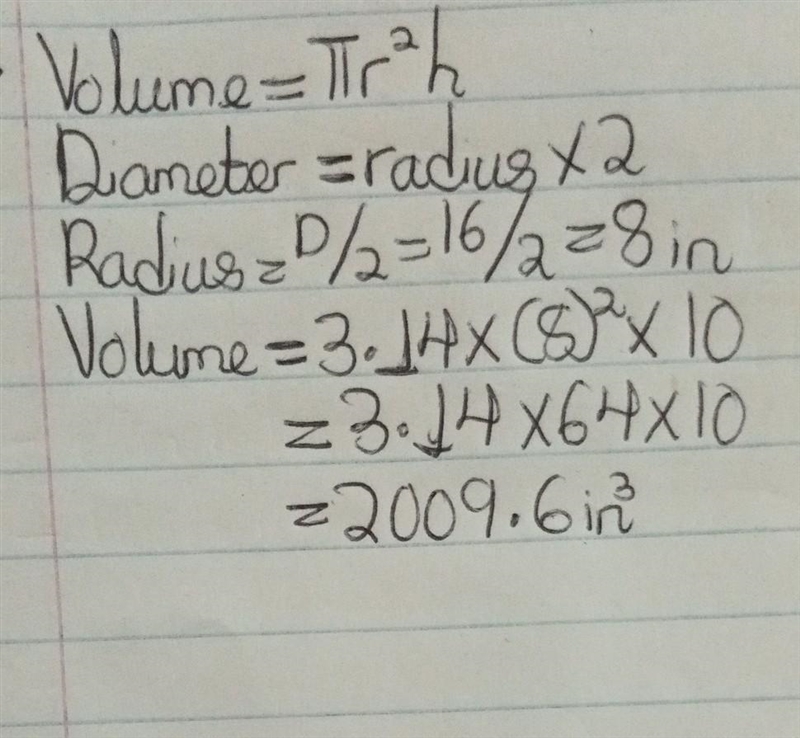 Volume = πr²h
Diameter = radius × 2
Radius = D/2 = 16/2 = 8 in
Volume = 3.14 × (8)² × 10
= 3.14 × 64 × 10
= 2009.6 in³